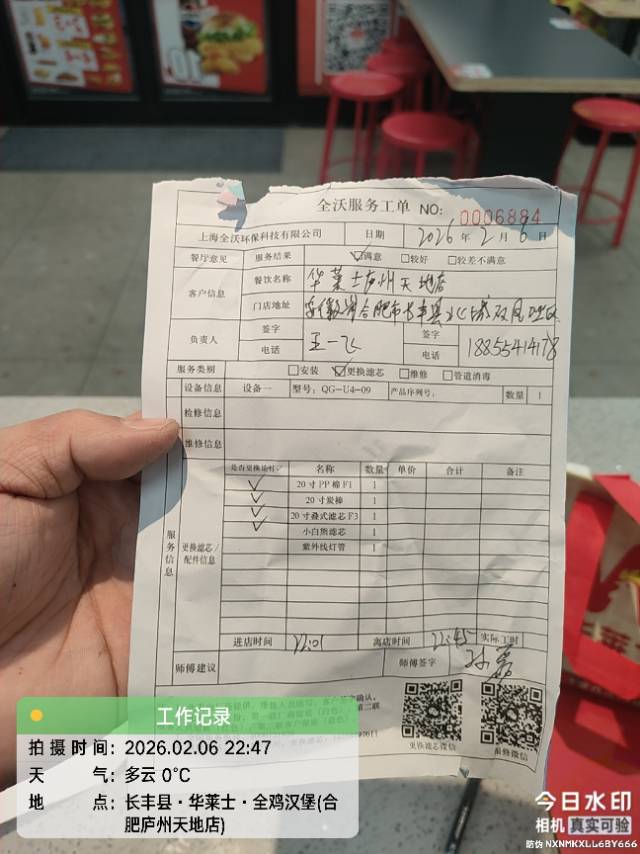 全沃服务工单 NO: 0006884
上海全沃环保科技有限公司 日期 2026年2月6日
餐厅意见 服务结果 ☑满意 □较好 □较差不满意
客户信息 餐饮名称 华莱士庐州天地店
门店地址 安徽省合肥市长丰县北城双凤
负责人 签字 王一飞 签字
电话 电话 18855414178
服务类别 □安装 ☑更换滤芯 □维修 □管道消毒
设备信息 设备一 型号: QG-U4-09 产品序列号: 数量 1
检修信息
维修信息
服务信息
更换滤芯/配件信息
是否更换 名称 数量 单价 合计 备注
✓ 20寸PP棉F1 1
✓ 20寸炭棒 1
✓ 20寸叠式滤芯F3 1
✓ 小白熊滤芯 1
紫外线灯管 1
进店时间 22:01 离店时间 22:45 实际工时
师傅建议 师傅签字
更换滤芯微信 报修微信
工作记录
拍摄时间: 2026.02.06 22:47
天气: 多云 0°C
地点: 长丰县·华莱士·全鸡汉堡(合
肥庐州天地店)
今日水印
相机 真实可验
防伪 NXNMKXLL6BY666